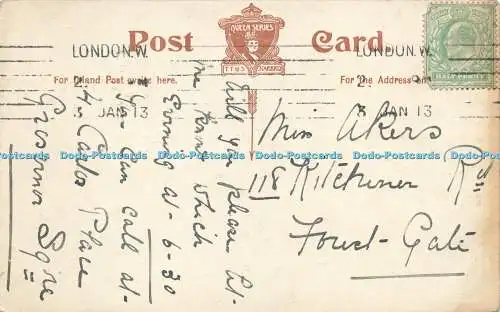 Post Card.
QUEEN SERIES
LONDON.W.
2.
3 JAN 13
LONDON.W.
2.
3 JAN 13
HALF PENNY
For Inland Post write here.
For the Address only
Will you please let
me know which
Evening at 6-30
you can call at
4 Carlos Place
Grosvenor Sqre
Miss Akers
118 Kitchener Rd
Forest-Gate
Dodo-Postcards Dodo-Postcards Dodo-Postcards Dodo-Postcards Dodo-Postcards Dodo-Postcards